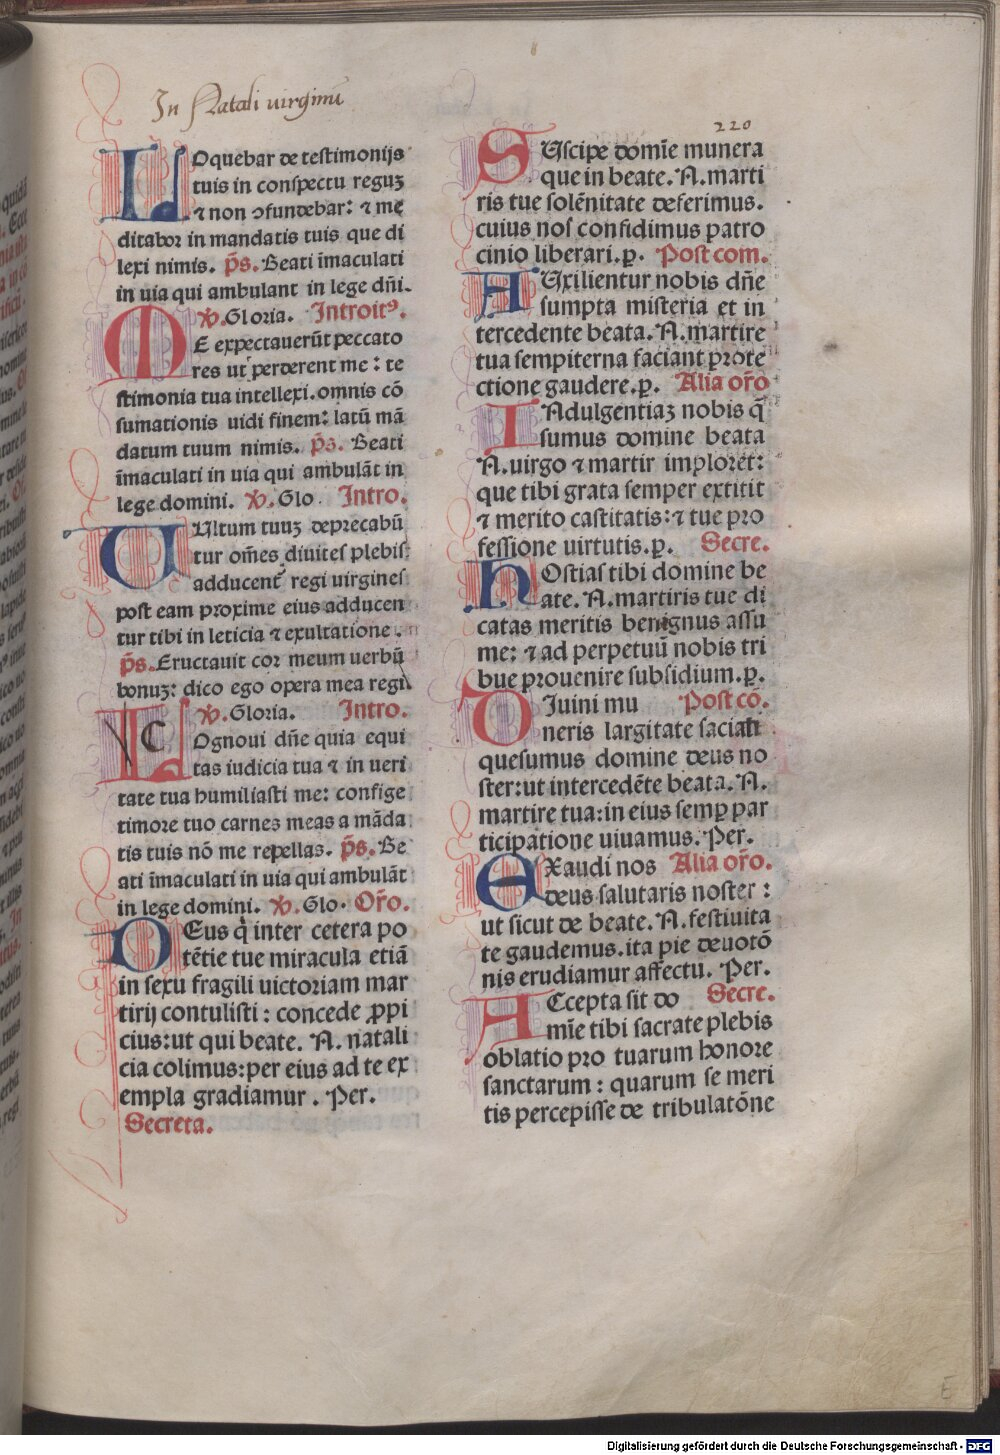 In Natali virginũ
220
LOquebar de testimonijs
tuis in conspectu reguꝫ
⁊ non ↄfundebar: ⁊ me
ditabor in mandatis tuis que di
lexi nimis. p̃s. Beati ĩmaculati
in uia qui ambulant in lege dñi.
MꝞ. Gloria. Introitꝰ.
E expectauerũt peccato
res ut perderent me: te
stimonia tua intellexi. omnis cõ
sumationis uidi finem: latũ mã
datum tuum nimis. p̃s. Beati
ĩmaculati in uia qui ambulãt in
lege domini. Ꝟ. Glo. Intro.
VUltum tuuꝫ deprecabũ
tur om̃es diuites plebis:
adducent᷑ regi uirgines
post eam proxime eius adducen
tur tibi in leticia ⁊ exultatione.
p̃s. Eructauit cor meum uerbũ
bonuꝫ: dico ego opera mea regi
Ꝟ. Gloria. Intro.
COgnoui dñe quia equi
tas iudicia tua ⁊ in ueri
tate tua humiliasti me: confige
timore tuo carnes meas a mãda
tis tuis nõ me repellas. p̃s. Be
ati ĩmaculati in uia qui ambulãt
in lege domini. Ꝟ. Glo. Or̃o.
DEus q̃ inter cetera po
tẽtie tue miracula etiã
in sexu fragili uictoriam mar
tirij contulisti: concede ꝓpi
cius: ut qui beate. N. natali
cia colimus: per eius ad te ex
empla gradiamur. Per.
Secreta.
SUscipe domĩe munera
que in beate. N. marti
ris tue solẽnitate deferimus.
cuius nos confidimus patro
cinio liberari. p. Post com.
AUxilientur nobis dñe
sumpta misteria et in
tercedente beata. N. martire
tua sempiterna faciant prote
ctione gaudere. p. Alia or̃o
INdulgentiaꝫ nobis q̃
sumus domine beata
N. uirgo ⁊ martir imploret:
que tibi grata semper extitit
⁊ merito castitatis: ⁊ tue pro
fessione uirtutis. p. Secre.
HOstias tibi domine be
ate. N. martiris tue di
catas meritis benignus assu
me: ⁊ ad perpetuũ nobis tri
bue prouenire subsidium. p.
DIuini mu Post cõ.
neris largitate saciati
quesumus domine deus no
ster: ut intercedẽte beata. N.
martire tua: in eius semꝑ par
ticipatione uiuamus. Per.
EXaudi nos Alia or̃o.
deus salutaris noster:
ut sicut de beate. N. festiuita
te gaudemus. ita pie deuotõ
nis erudiamur affectu. Per.
ACcepta sit do Secre.
mĩe tibi sacrate plebis
oblatio pro tuarum honore
sanctarum: quarum se meri
tis percepisse de tribulatõne
E
Digitalisierung gefördert durch die Deutsche Forschungsgemeinschaft - DFG